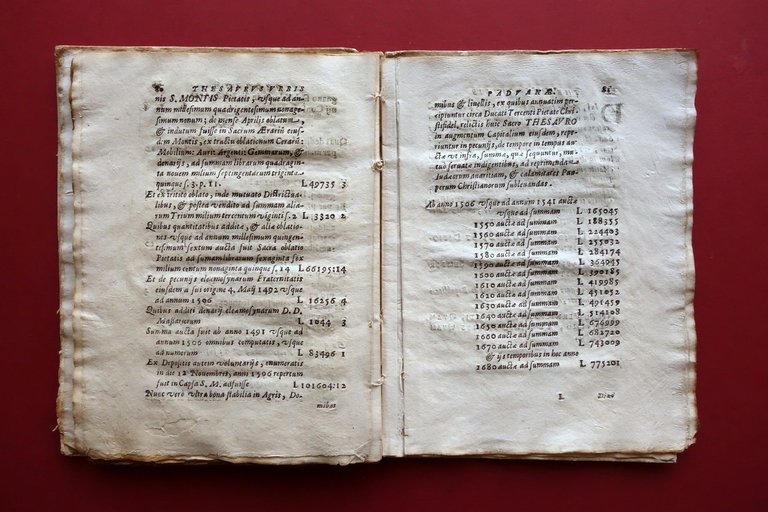 80 THESAVRVS VRBIS
nis S. MONTIS Pietatis, vsque ad an-
num millesimum quadrigentesimum nonage-
simum nonum; de pense Aprilis oblatum,
& indutum fuisse in Sacrum Ærarij eius-
dem Montis, ex tractu oblationum Cerarū:
Mobilium: Auri: Argenti: Gemmarum, &
denarijs, ad summam librarum quadragita-
ta nouem milium septingentarum triginta
quinque s. 3. p. 11. L 49735 3
Et ex tritico oblato, inde mutuato Districtua-
libus, & postea vendito ad summam alia-
rum Trium milium tercentum viginti s. 2 L 3320 2
Quibus quantitatibus additæ, & aliæ oblatio-
nes vsque ad annum millesimum quingen-
tesimum sextum aucta fuit Sacra oblatio
Pietatis ad sumam librarum sexaginta sex
milium centum nonaginta quinque s. 14 L 66195:14
Et de pecunijs eleemosynarum Fraternitatis
eiusdem a sui origine 4. Maij 1492 vsque
ad annum 1506 L 16256 4
Quibus additi denarij eleemosynarum D. D.
Massariorum L 1044 3
Summa aucta fuit ab anno 1491 vsque ad
annum 1506 omnibus computatis, vsque
ad numerum L 83496 1
Ex Depositis autem voluntarijs, enumeratis
in die 12 Nouembris, anni 1506 repertum
fuit in Capsa S. M. adfuisse L 101604:12
Nunc vero vltra bona stabilia in Agris, Do-
mibus
PADVANÆ. 81
mibus & liuellis, ex quibus annuatim per-
cipiuntur circa Ducati Tercenti Pietate Chri-
stifidel. relictis huic Sacro THESAVRO
in augmentum Capitalium eiusdem, repe-
riuntur in pecunijs, de tempore in tempus au-
ctæ vt infra, summæ, quæ sequuntur, mu-
tuo seruatæ indigentibus, ad reprimendam
Iudæorum auaritiam, & calamitates Pau-
perum Christianorum subleuandas.
Ab anno 1506 vsque ad annum 1541 auctæ
vsque ad summam L 165045
1550 auctæ ad summam L 188355
1560 auctæ ad summam L 224403
1570 auctæ ad summam L 255032
1580 auctæ ad summam L 284174
1590 auctæ ad summam L 364945
1600 auctæ ad summam L 390185
1610 auctæ ad summam L 419985
1620 auctæ ad summam L 451052
1630 auctæ ad summam L 491459
1640 auctæ ad summam L 514108
1650 auctæ ad summam L 676999
1660 auctæ ad summam L 682720
1670 auctæ ad summam L 743009
& ijs temporibus in hoc anno
1680 auctæ ad summam L 775201
L Diuū